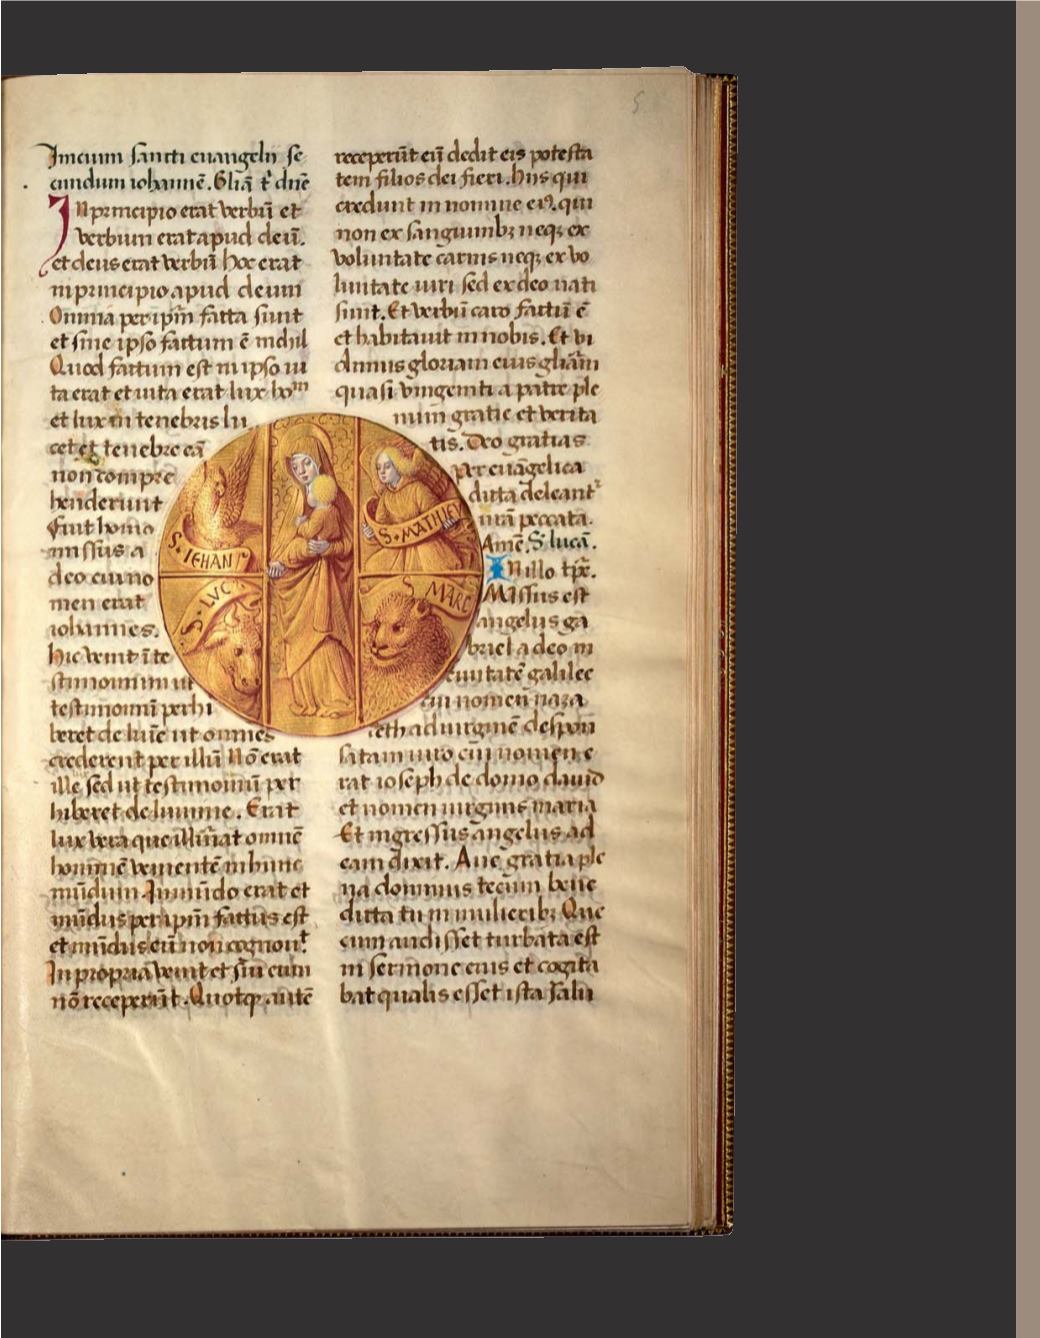 5
Inicium sancti euangelii se
cundum iohannē. Gl̄ia t̄ dn̄e
IN principio erat verbū et
verbum erat apud deū.
et deus erat verbū hoc erat
in principio apud deum
Omnia per ip̄m facta sunt
et sine ipso factum ē nichil
Quod factum est in ipso ui
ta erat et uita erat lux ho^m
et lux in tenebris lu
cet et tenebre eā
non compre
henderunt
Fuit homo
missus a
deo cui no
men erat
iohannes.
Hic venit ī te
stimonium ut
testimoniū perhi
beret de lūie ut omnes
crederent per illū Nō erat
ille sed ut testimoniū per
hiberet de lumine. Erat
lux vera que illūiat omnē
hominē venientē in hunc
mūdum. In mūdo erat et
mūdus per ip̄m factus est
et mūdus eū non cognouᵗ
In propria venit et sui eum
nō receperūt. Quotqᵒᵗ autē
receperūt eū dedit eis potesta
tem filios dei fieri. Hiis qui
credunt in nomine eiꝰ. qui
non ex sanguinibꝫ neqꝫ ex
voluntate carnis neqꝫ ex vo
luntate uiri sed ex deo nati
sunt. Et verbū caro factū ē
et habitauit in nobis. Et vi
dimus gloriam eius gl̄iam
quasi vnigeniti a patre ple
num gratie et verita
tis. Deo gratias
Per euāgelica
dicta deleantᵗ
n̄ra peccata.
Amē. S. lucā.
IN illo tp̄r.
Missus est
angelus ga
briel a deo in
ciuitatē galilee
cui nomen naza
reth ad uirginē despon
satam uiro cui nomen e
rat ioseph de domo dauid
et nomen uirginis maria
Et ingressus angelus ad
eam dixit. Aue gratia ple
na dominus tecum bene
dicta tu in mulieribꝫ Que
cum audisset turbata est
in sermone eius et cogita
bat qualis esset ista salu
S. IEHAN
S. MATHIEV
S. LVC
S MARC